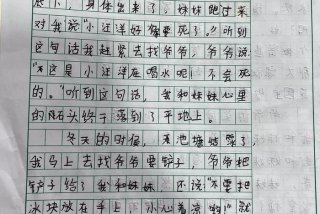 底下，身体出来了，妹妹跑过来
对我说"小汪洋好像要死了。"听到
这句话我赶紧去找爷爷，爷爷说：
"这是小汪洋在喝水吧！不会死
的。"听到这句话，我和妹妹心里
的石头终于落到了平地上。
冬天的时候，水池塘结冰了
我马上去找爷爷要铲子，爷爷把
铲子给了我和妹妹 还说"不要把
冰块放在手上，小心着凉哟！"就